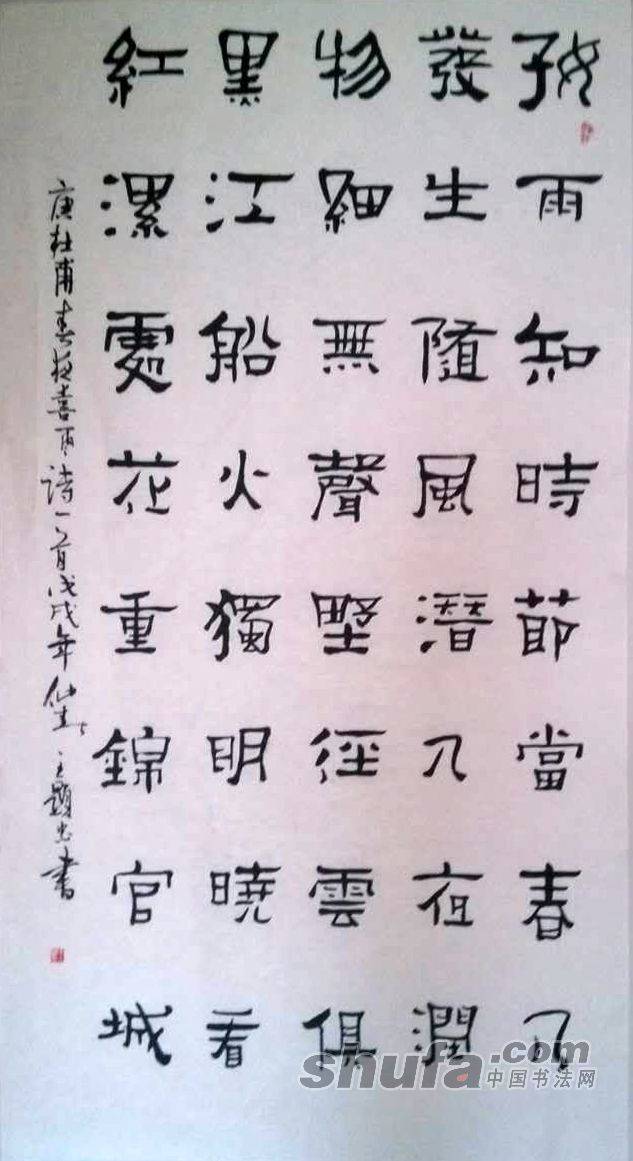 好雨知時節當春乃
發生隨風潛入夜潤
物細無聲野徑雲俱
黑江船火獨明曉看
紅濕處花重錦官城
唐杜甫春夜喜雨诗一首戊戌年書
shufa.com
中国书法网